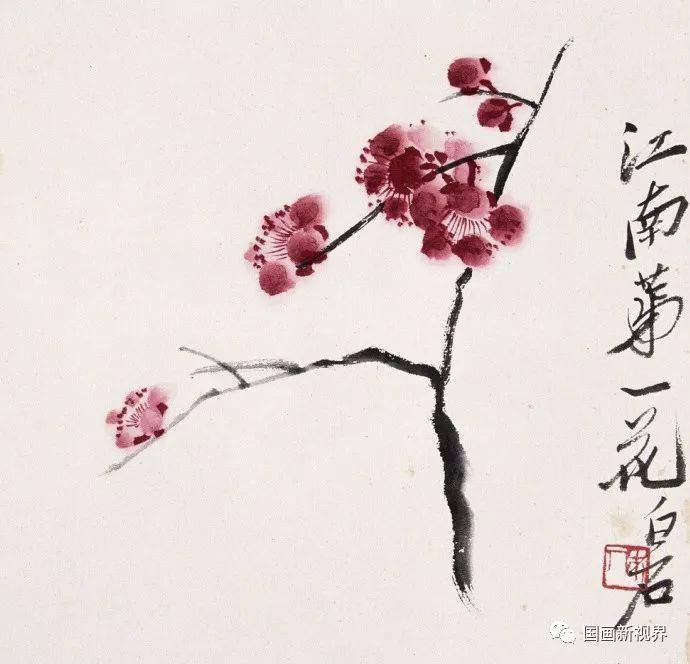 江南第一花白石
国画新视界